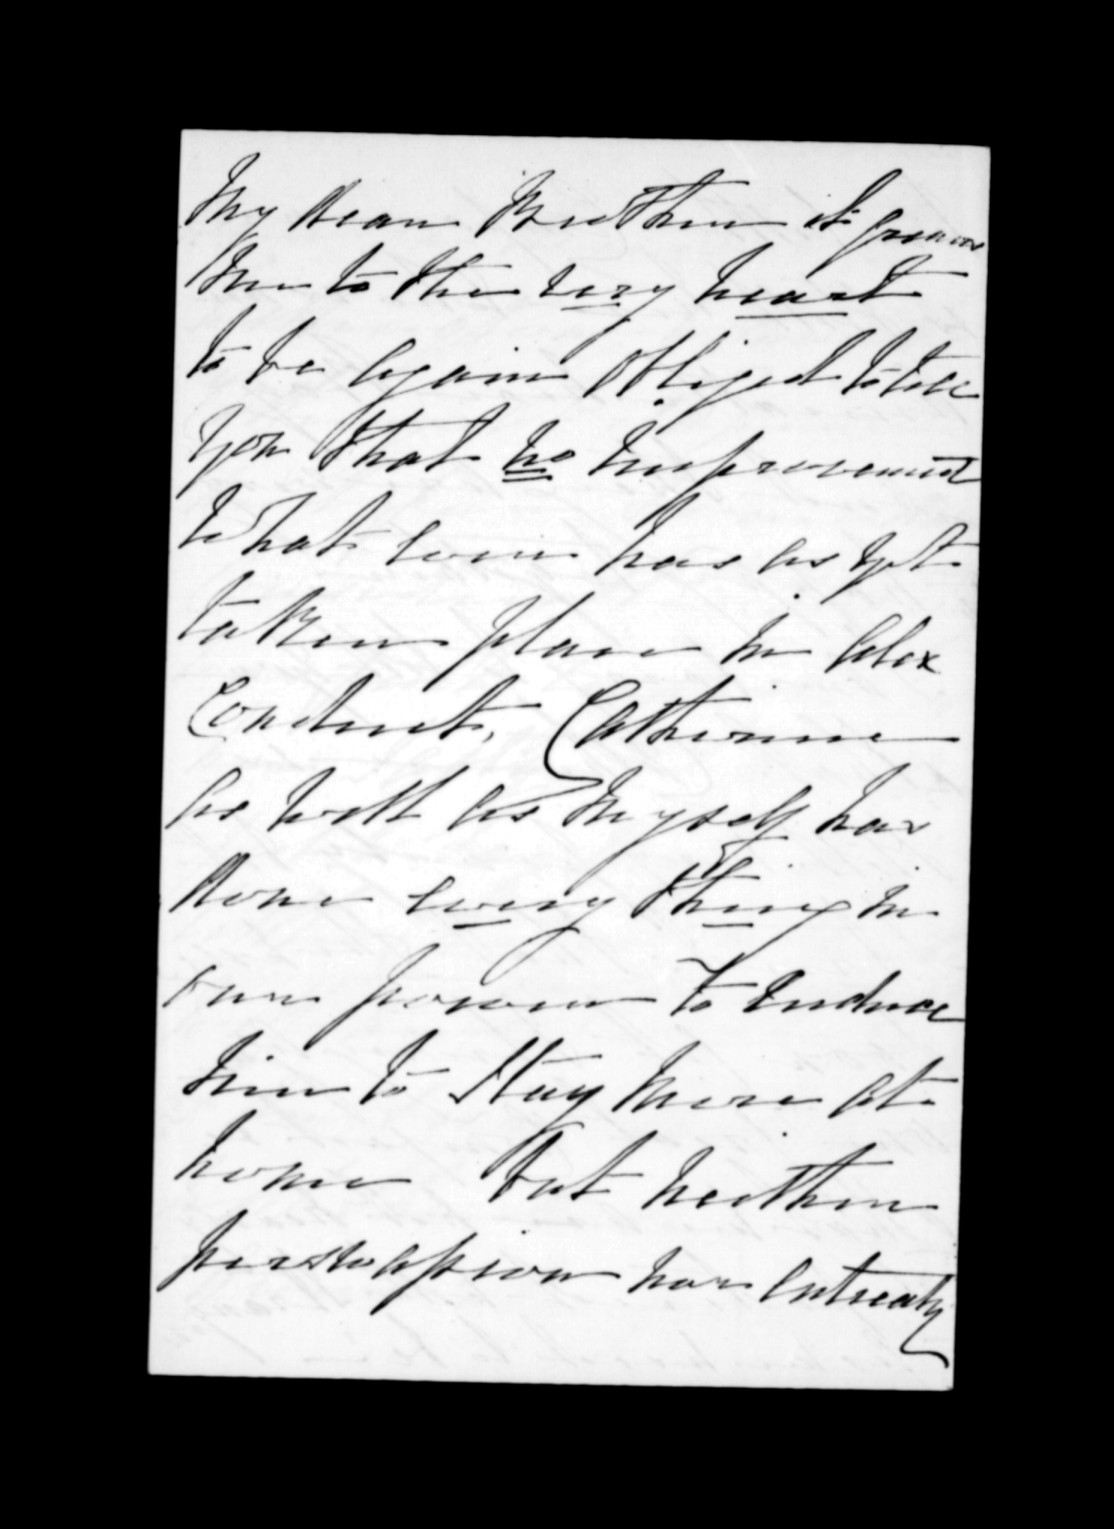 My dear Brother it grieves
me to the very heart
to be again obliged to tell
you that no improvement
what ever has as yet
taken place in Alex
Conduct, Catherine
as well as myself has
done every thing in
our power to induce
him to Stay more at
home but neither
perswassion nor entreaty